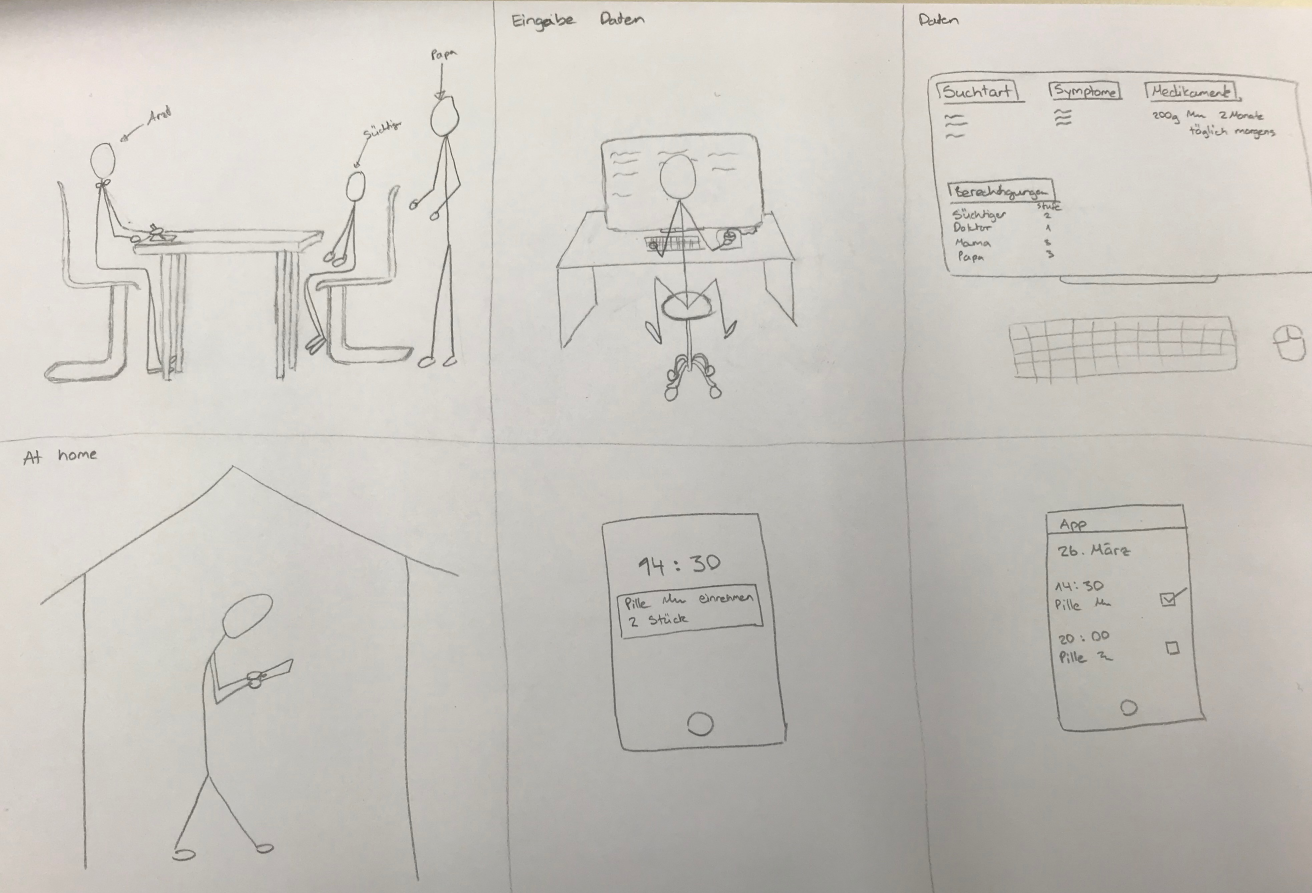 Arzt
Süchtiger
Papa
Eingabe Daten
Daten
Suchtart
Symptome
Medikamente
200g 2 Monate
täglich morgens
Berechtigungen
Stufe
Süchtiger 2
Doktor 1
Mama 3
Papa 3
At home
14:30
Pille einnehmen
2 Stück
App
26. März
14:30
Pille
20:00
Pille